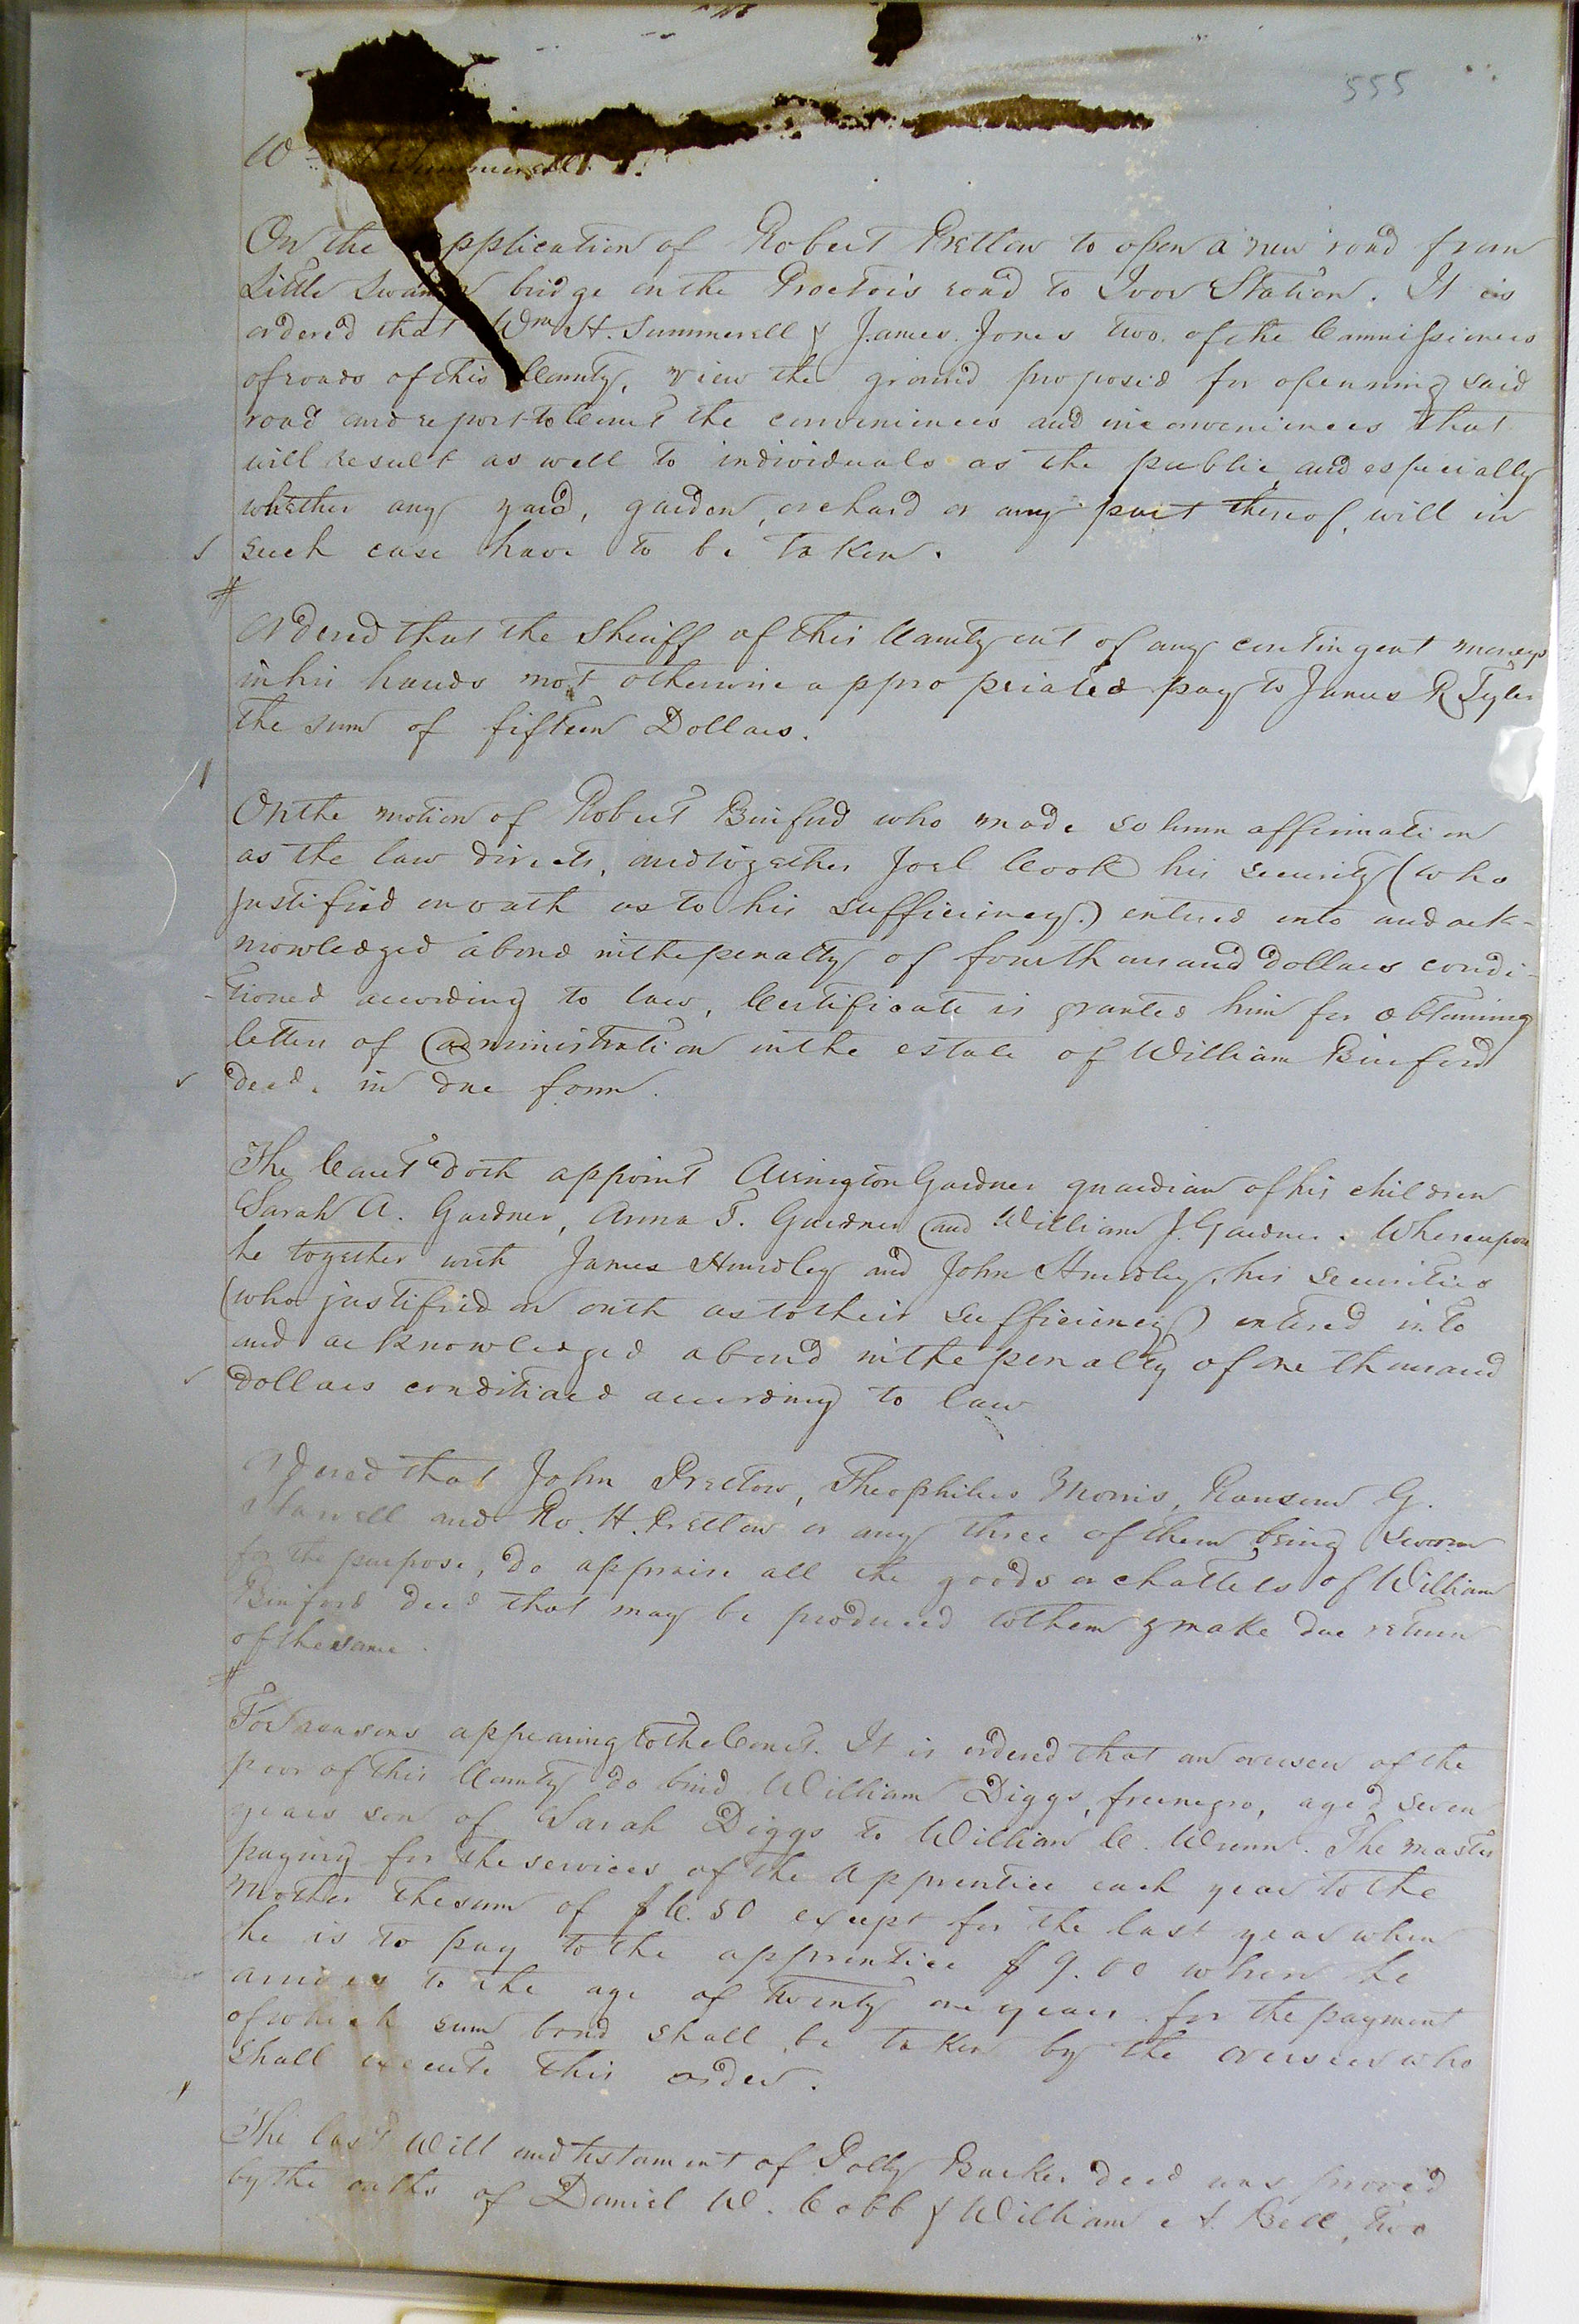 555
Wm H Summerell
On the application of Robert Pretlow to open a new road from
Little Swamp bridge on the Proctors road to Ivor Station. It is
ordered that Wm H. Summerell & James Jones two of the Commissioners
of roads of this County, view the ground proposed for openning said
road and report to Court the conveniences and inconveniences that
will result as well to individuals as the public, and especially
whether any yard, garden, orchard or any part thereof, will in
such case have to be taken.
Ordered that the Sheriff of this County out of any contingent moneys
in his hands not otherwise appropriated pay to James R Tyler
the sum of fifteen Dollars.
On the motion of Robert Binford who made solemn affirmation
as the law directs, and together Joel Cook his security (who
justified on oath as to his sufficiency.) entered into and ack-
nowledged a bond in the penalty of four thousand dollars condi-
-tioned according to law, Certificate is granted him for obtaining
letters of administration in the estate of William Binford
decd. in due form.
The Court doth appoint Arrington Gardner guardian of his children
Sarah A. Gardner, Anna T. Gardner and William J. Gardner. Whereupon
he together with James Hundley and John Hundley, his securities
(who justified on oath as to their sufficiency) entered into
and acknowledged a bond in the penalty of one thousand
dollars conditioned according to law
Ordered that John Pretlow, Theophilus Morris, Ransom G.
and Ro. H. Pretlow or any three of them being sworn
for the purpose, do appraise all the goods or chattels of William
Binford decd that may be produced to them & make due return
of the same.
For reasons appearing to the Court. It is ordered that an overseer of the
poor of this County do bind William Diggs, free negro, aged seven
years son of Sarah Diggs to William C. Wrenn. The master
paying for the services of the apprentice each year to the
Mother the sum of $6.50 except for the last year when
he is to pay to the apprentice $9.00 when he
arrives to the age of twenty one years for the payment
of which sum bond shall be taken by the overseer who
shall execute this order.
The last Will and testament of Polly Barker decd was proved
by the oaths of Daniel W. Cobb & William A. Bell, two